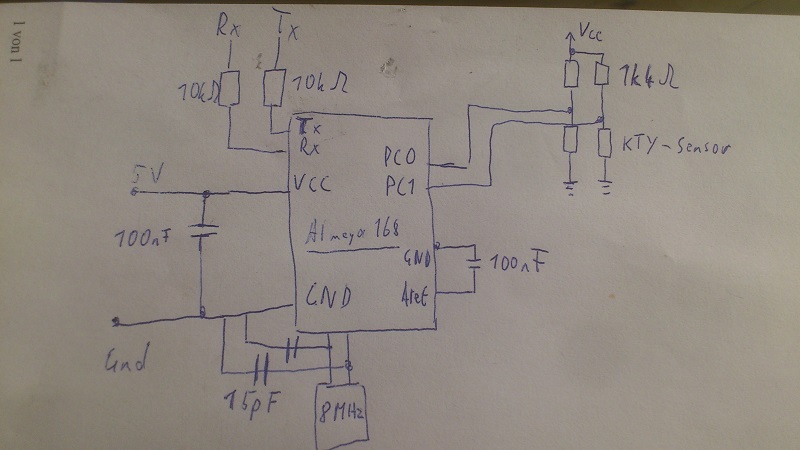 1 von 1
Rx Tx
10kΩ 10kΩ
Vcc
1k4Ω
Tx
Rx
PC0
KTY-Sensor
5V
VCC
PC1
100nF
Atmega 168
GND
100nF
GND
Aref
Gnd
15pF
8MHz